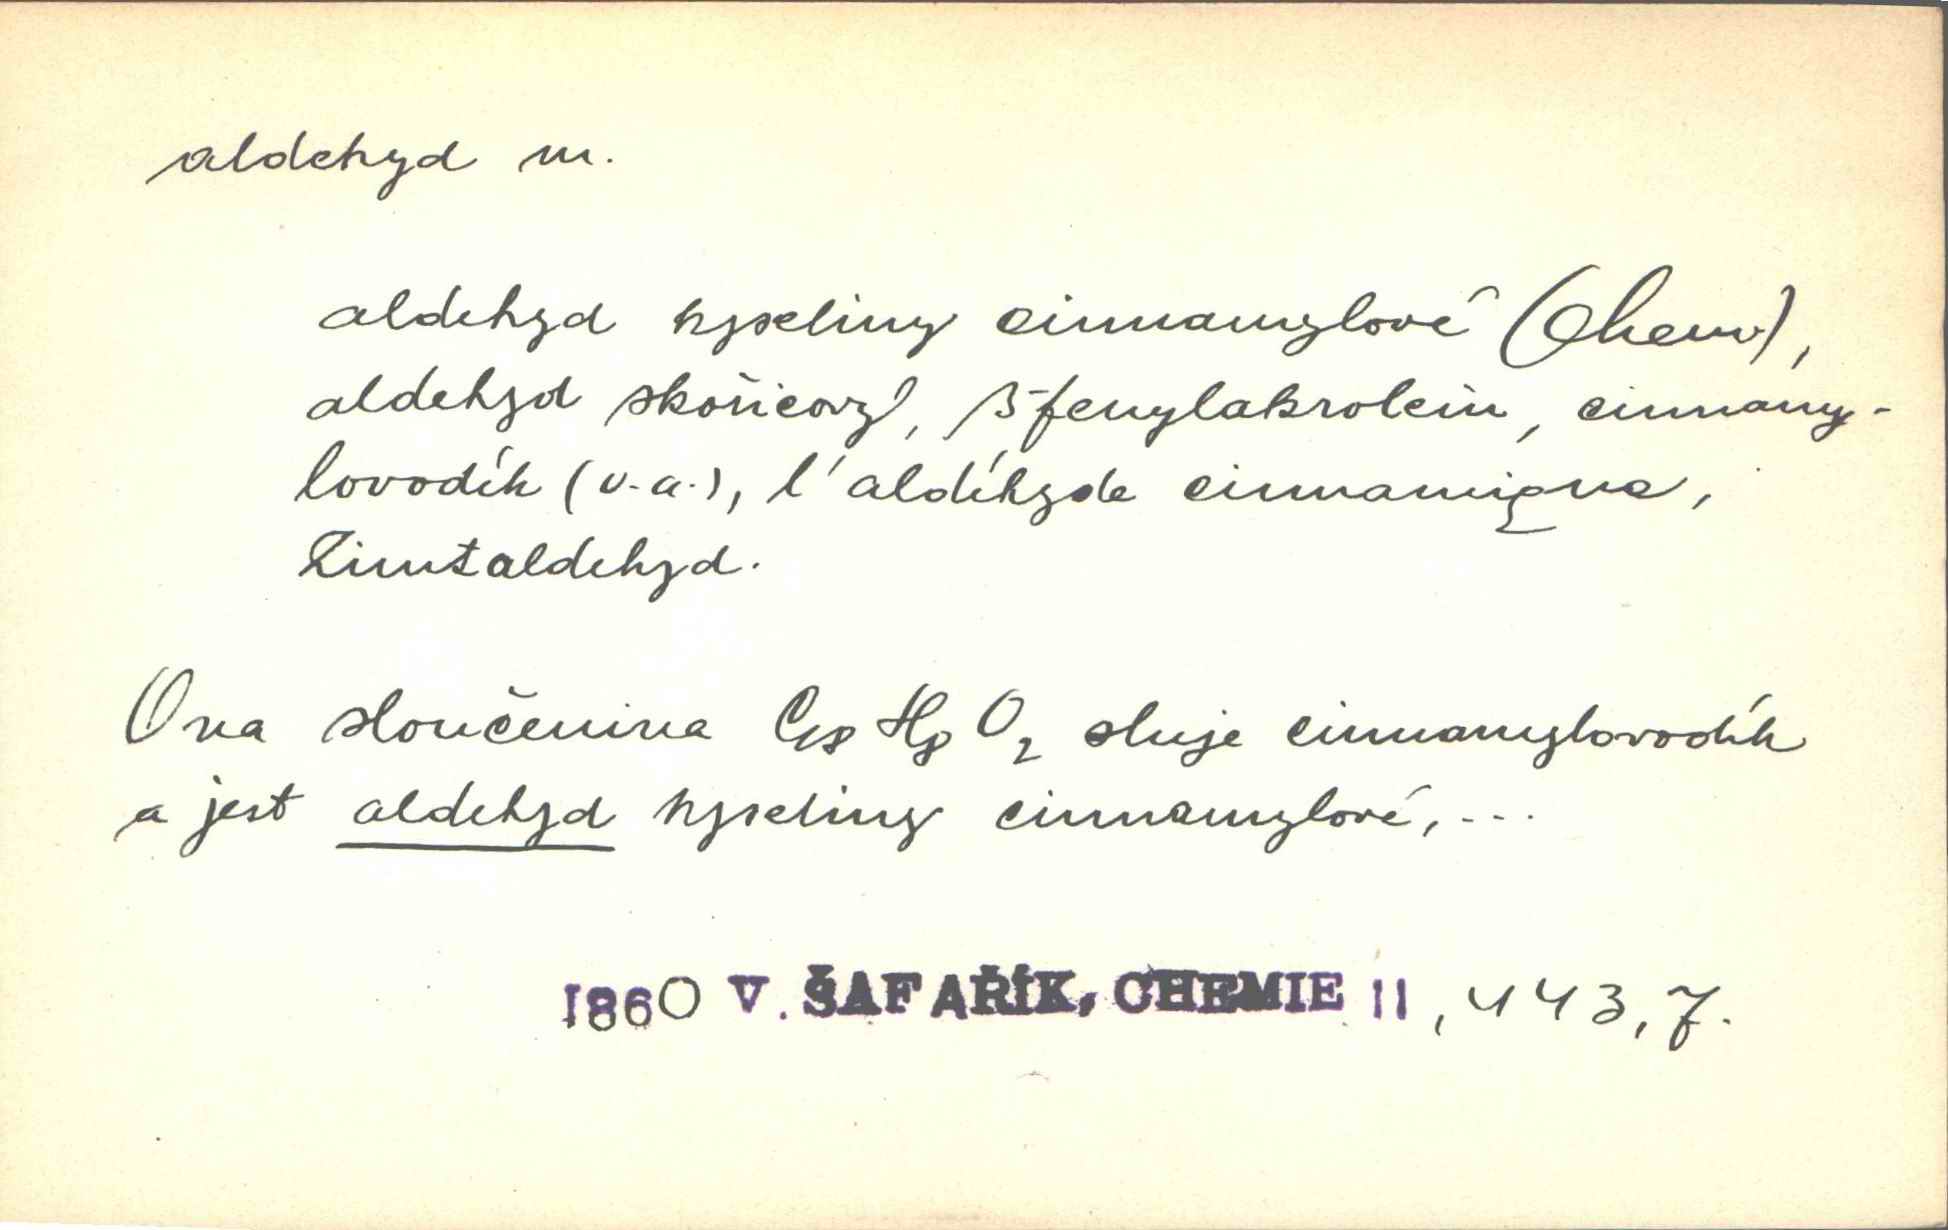 aldehyd m.
aldehyd kyseliny cinnamylové (Chem),
aldehyd skořicový, β-fenylakrolein, cinnamy-
lovodík (v.a.), l'aldéhyde cinnamique,
Zimtaldehyd.
Ona sloučenina C₁₈ H₈ O₂ sluje cinnamylovodík
a jest aldehyd kyseliny cinnamylové, ...
1860 V. ŠAFAŘÍK, CHEMIE II, 443, 7.